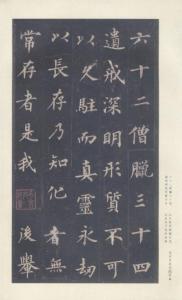 六十二僧臘三十四
遺戒深明形質不可
以久駐而真靈永劫
以長存乃知化者無
常存者是我 後學